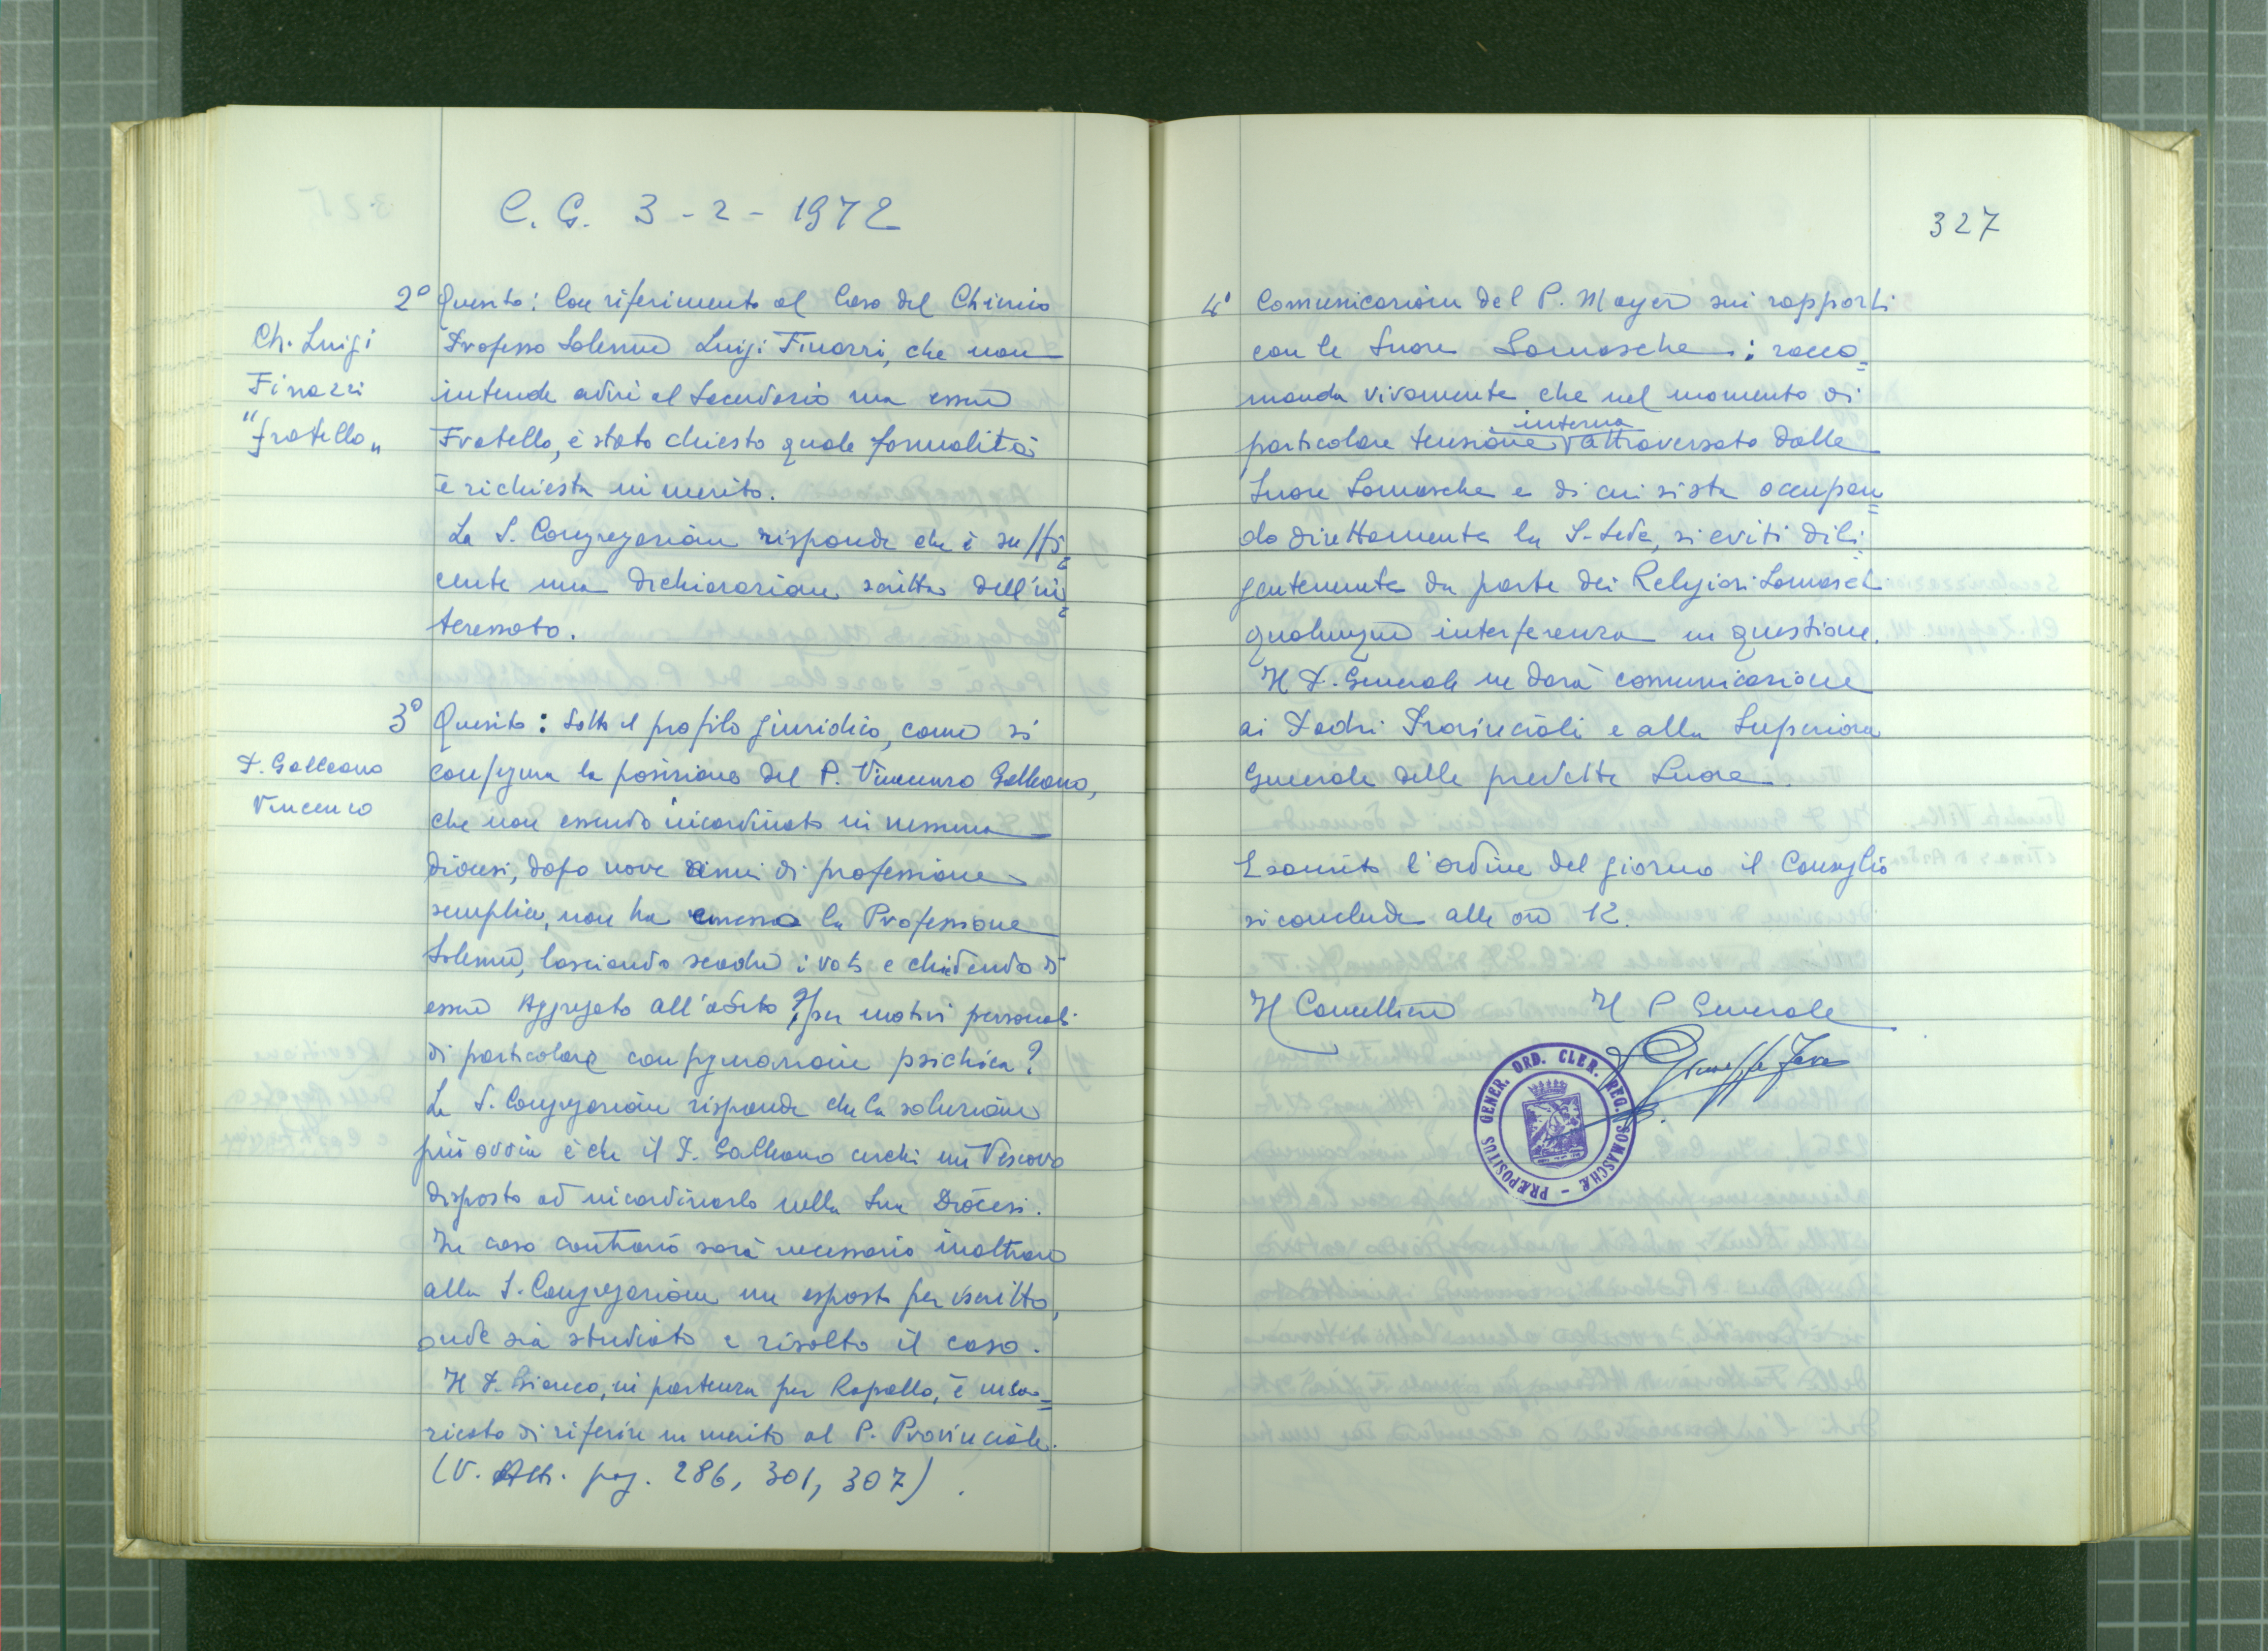 C. G. 3-2-1972
2° Quesito: Con riferimento al Caso del Chierico
Ch. Luigi
Finazzi
"fratello"
Professo Solenne Luigi Finazzi, che non
intende adire al Sacerdozio ma essere
Fratello, è stato chiesto quale formalità
è richiesta in merito.
La S. Congregazione risponde che è suffi=
cente una dichiarazione scritta dell'in=
teressato.
3° Quesito: Sotto il profilo giuridico, come si
P. Galleano
Vincenzo
configura la posizione del P. Vincenzo Galleano,
che non essendo incardinato in nessuna
diocesi, dopo nove anni di professione
semplice, non ha emesso la Professione
Solenne, lasciando scadere i voti e chiedendo di
essere Aggregato all'abito per motivi personali
di particolare configurazione psichica?
La S. Congregazione risponde che la soluzione
più ovvia è che il P. Galleano cerchi un Vescovo
disposto ad incardinarlo nella Sua Diocesi.
In caso contrario sarà necessario inoltrare
alla S. Congregazione un esposto per iscritto,
onde sia studiato e risolto il caso.
Il P. Bianco, in partenza per Rapallo, è inca=
ricato di riferire in merito al P. Provinciale.
(V. Atti. pag. 286, 301, 307).
327
4° Comunicazione del P. Mayer sui rapporti
con le Suore Somasche: racco=
manda vivamente che nel momento di
particolare tensione interna attraversato dalle
Suore Somasche e di cui si sta occupan=
do direttamente la S. Sede, si eviti dili=
gentemente da parte dei Religiosi Somaschi
qualunque interferenza in questione.
Il P. Generale ne darà comunicazione
ai Padri Provinciali e alla Superiora
Generale delle predette Suore.
Esaurito l'ordine del giorno il Consiglio
si conclude alle ore 12.
Il Cancelliere Il P Generale
P. Giuseppe Fava
PRÆPOSITUS GENER. ORD. CLER. REG. SOMASCHÆ